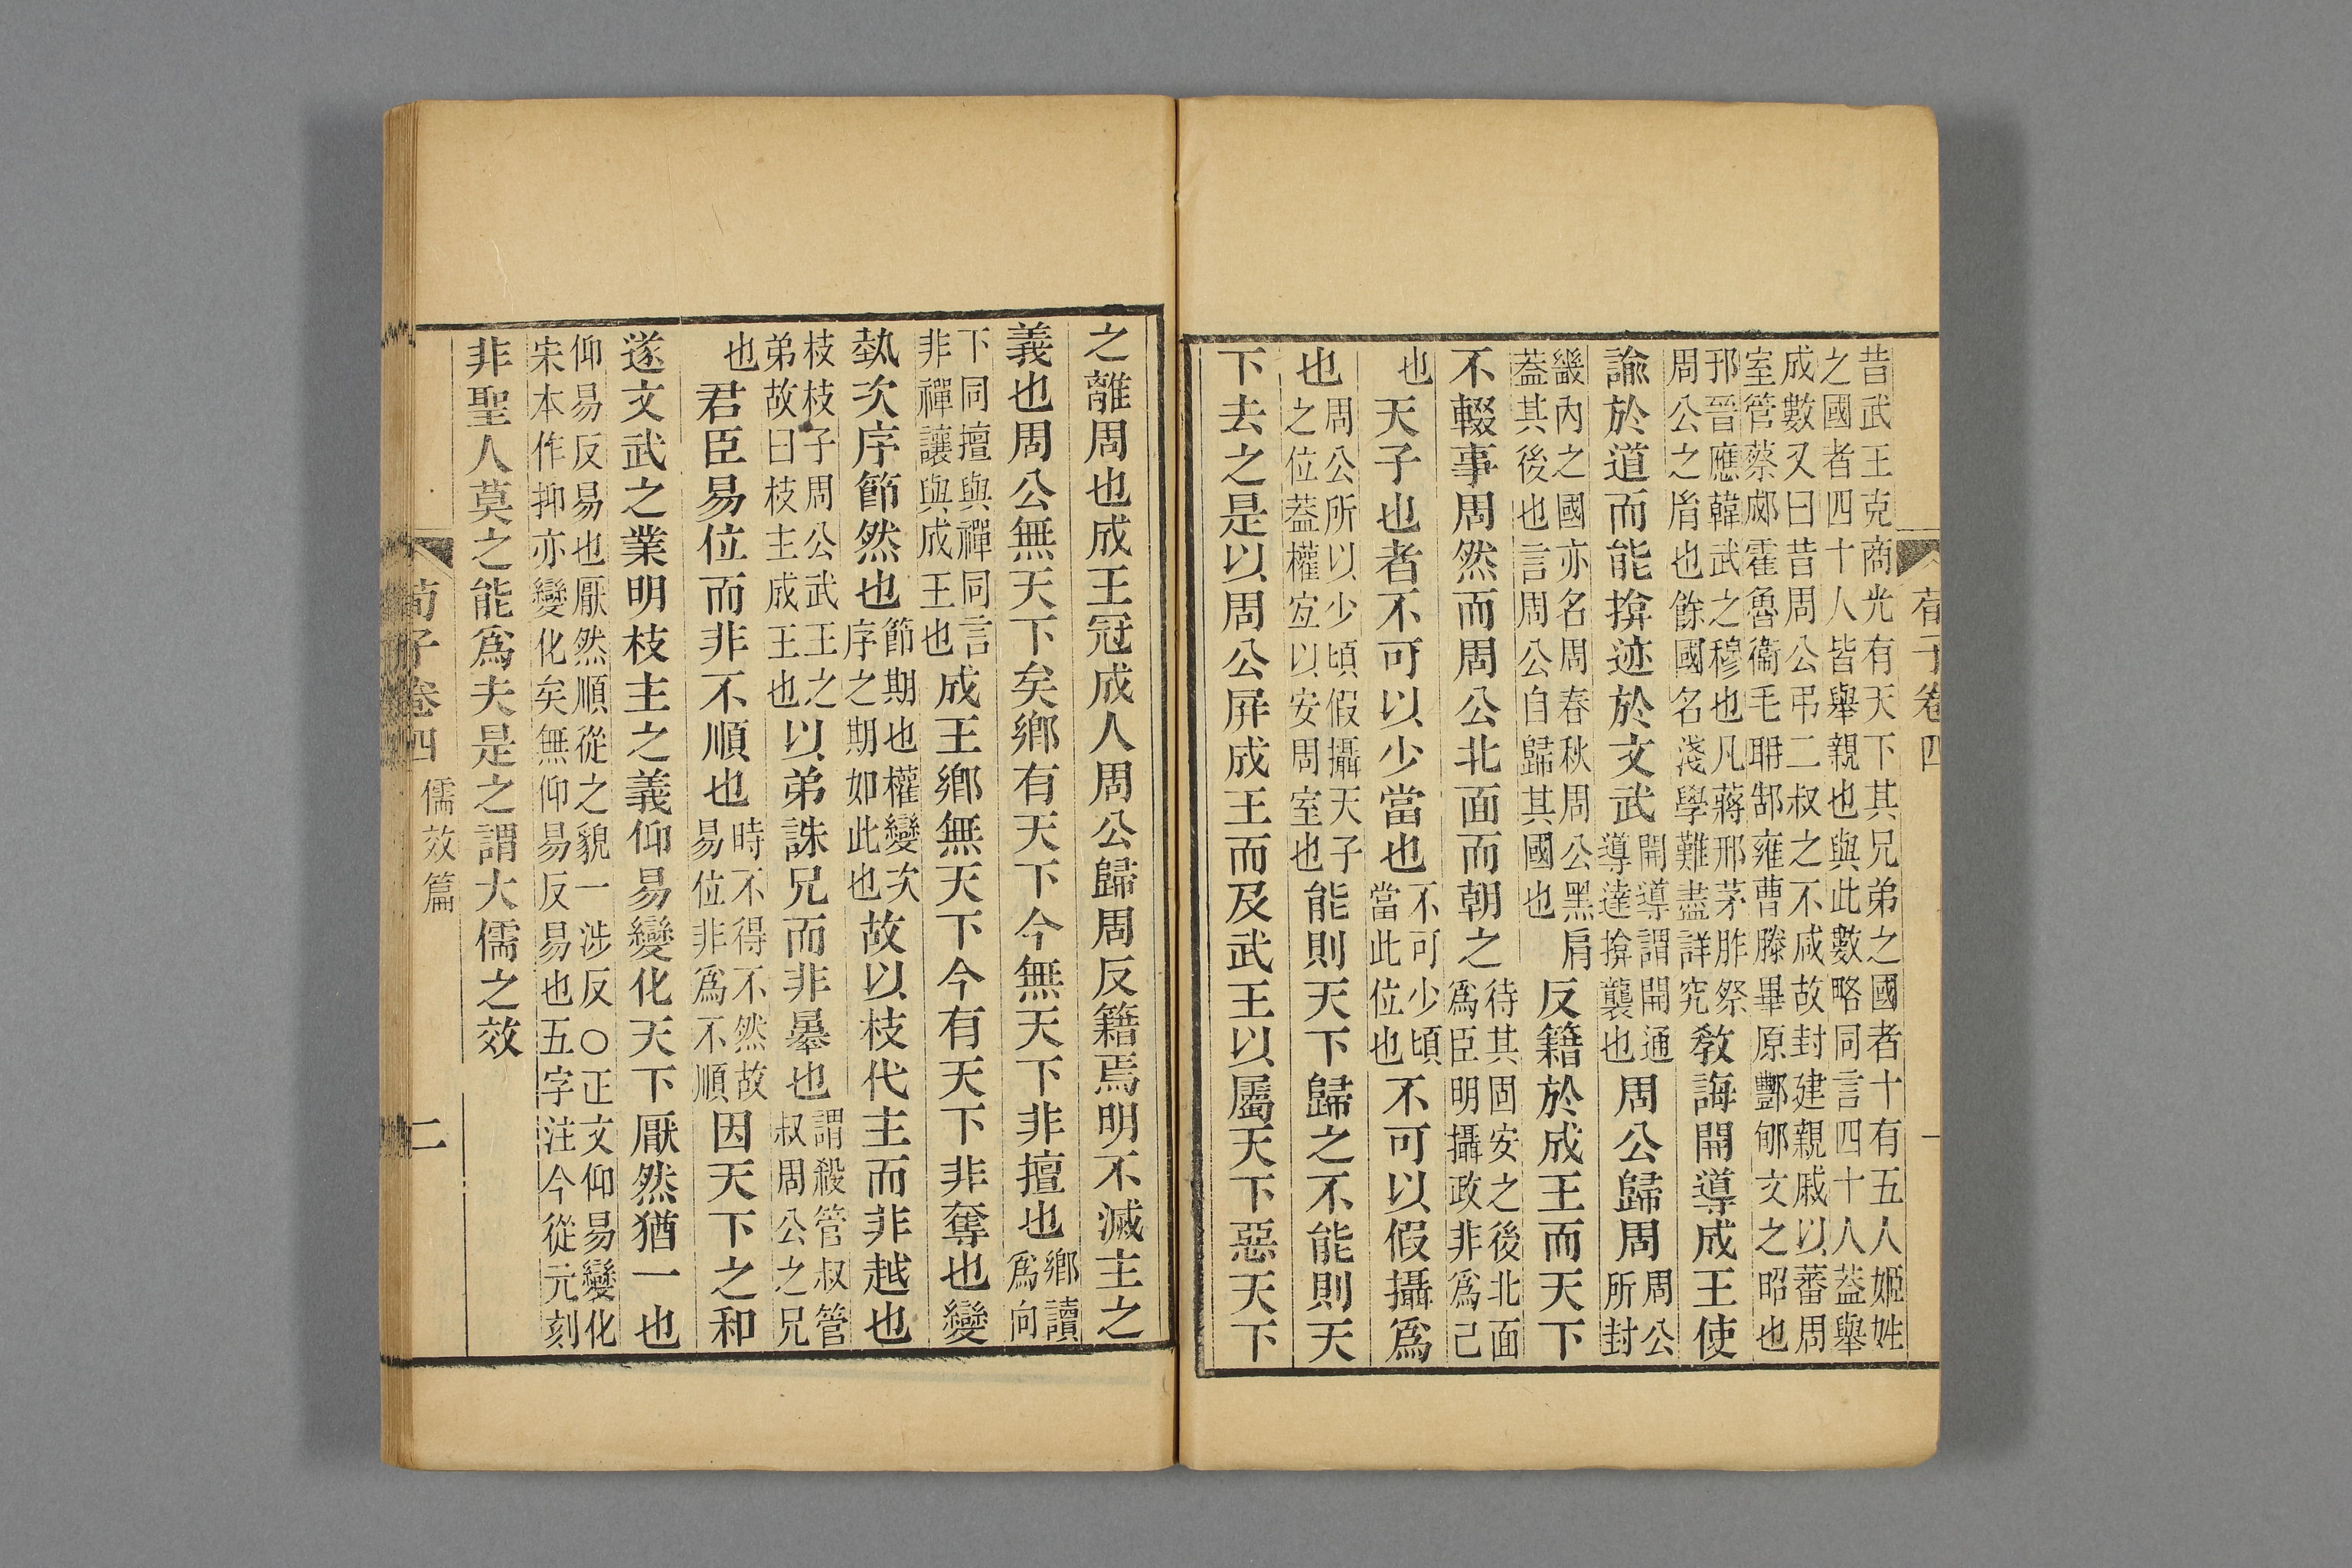 荀子卷四 一
昔武王克商光有天下其兄弟之國者十有五人姬姓
之國者四十人皆舉親也與此數略同言四十八葢舉
成數又曰昔周公弔二叔之不咸故封建親戚以蕃周
室管蔡郕霍魯衞毛聃郜雍曹滕畢原酆郇文之昭也
邘晉應韓武之穆也凡蔣邢茅胙祭
周公之胤也餘國名淺學難盡詳究
教誨開導成王使
諭於道而能揜迹於文武
開導謂開通
導達揜襲也
周公歸周
周公
所封
畿內之國亦名周春秋周公黑肩
葢其後也言周公自歸其國也
反籍於成王而天下
不輟事周然而周公北面而朝之
待其固安之後北面
爲臣明攝政非爲己
也
天子也者不可以少當也
不可少頃
當此位也
不可以假攝爲
也
周公所以少頃假攝天子
之位葢權宐以安周室也
能則天下歸之不能則天
下去之是以周公屛成王而及武王以屬天下惡天下
之離周也成王冠成人周公歸周反籍焉明不滅主之
義也周公無天下矣鄕有天下今無天下非擅也
鄕讀
爲向
下同擅與禪同言
非禪讓與成王也
成王鄕無天下今有天下非奪也變
埶次序節然也
節期也權變次
序之期如此也
故以枝代主而非越也
枝枝子周公武王之
弟故曰枝主成王也
以弟誅兄而非暴也
謂殺管叔管
叔周公之兄
也
君臣易位而非不順也
時不得不然故
易位非爲不順
因天下之和
遂文武之業明枝主之義仰易變化天下厭然猶一也
仰易反易也厭然順從之貌一涉反○正文仰易變化
宋本作抑亦變化矣無仰易反易也五字注今從元刻
非聖人莫之能爲夫是之謂大儒之效
荀子卷四 儒效篇 二